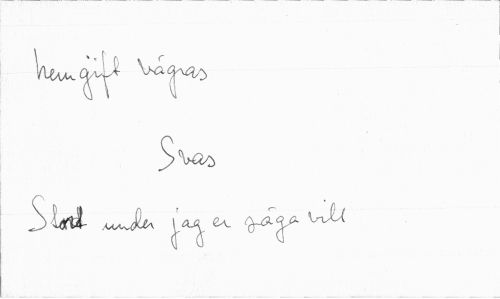 hemgift vägras
Svas
Stort under jag er säga vill